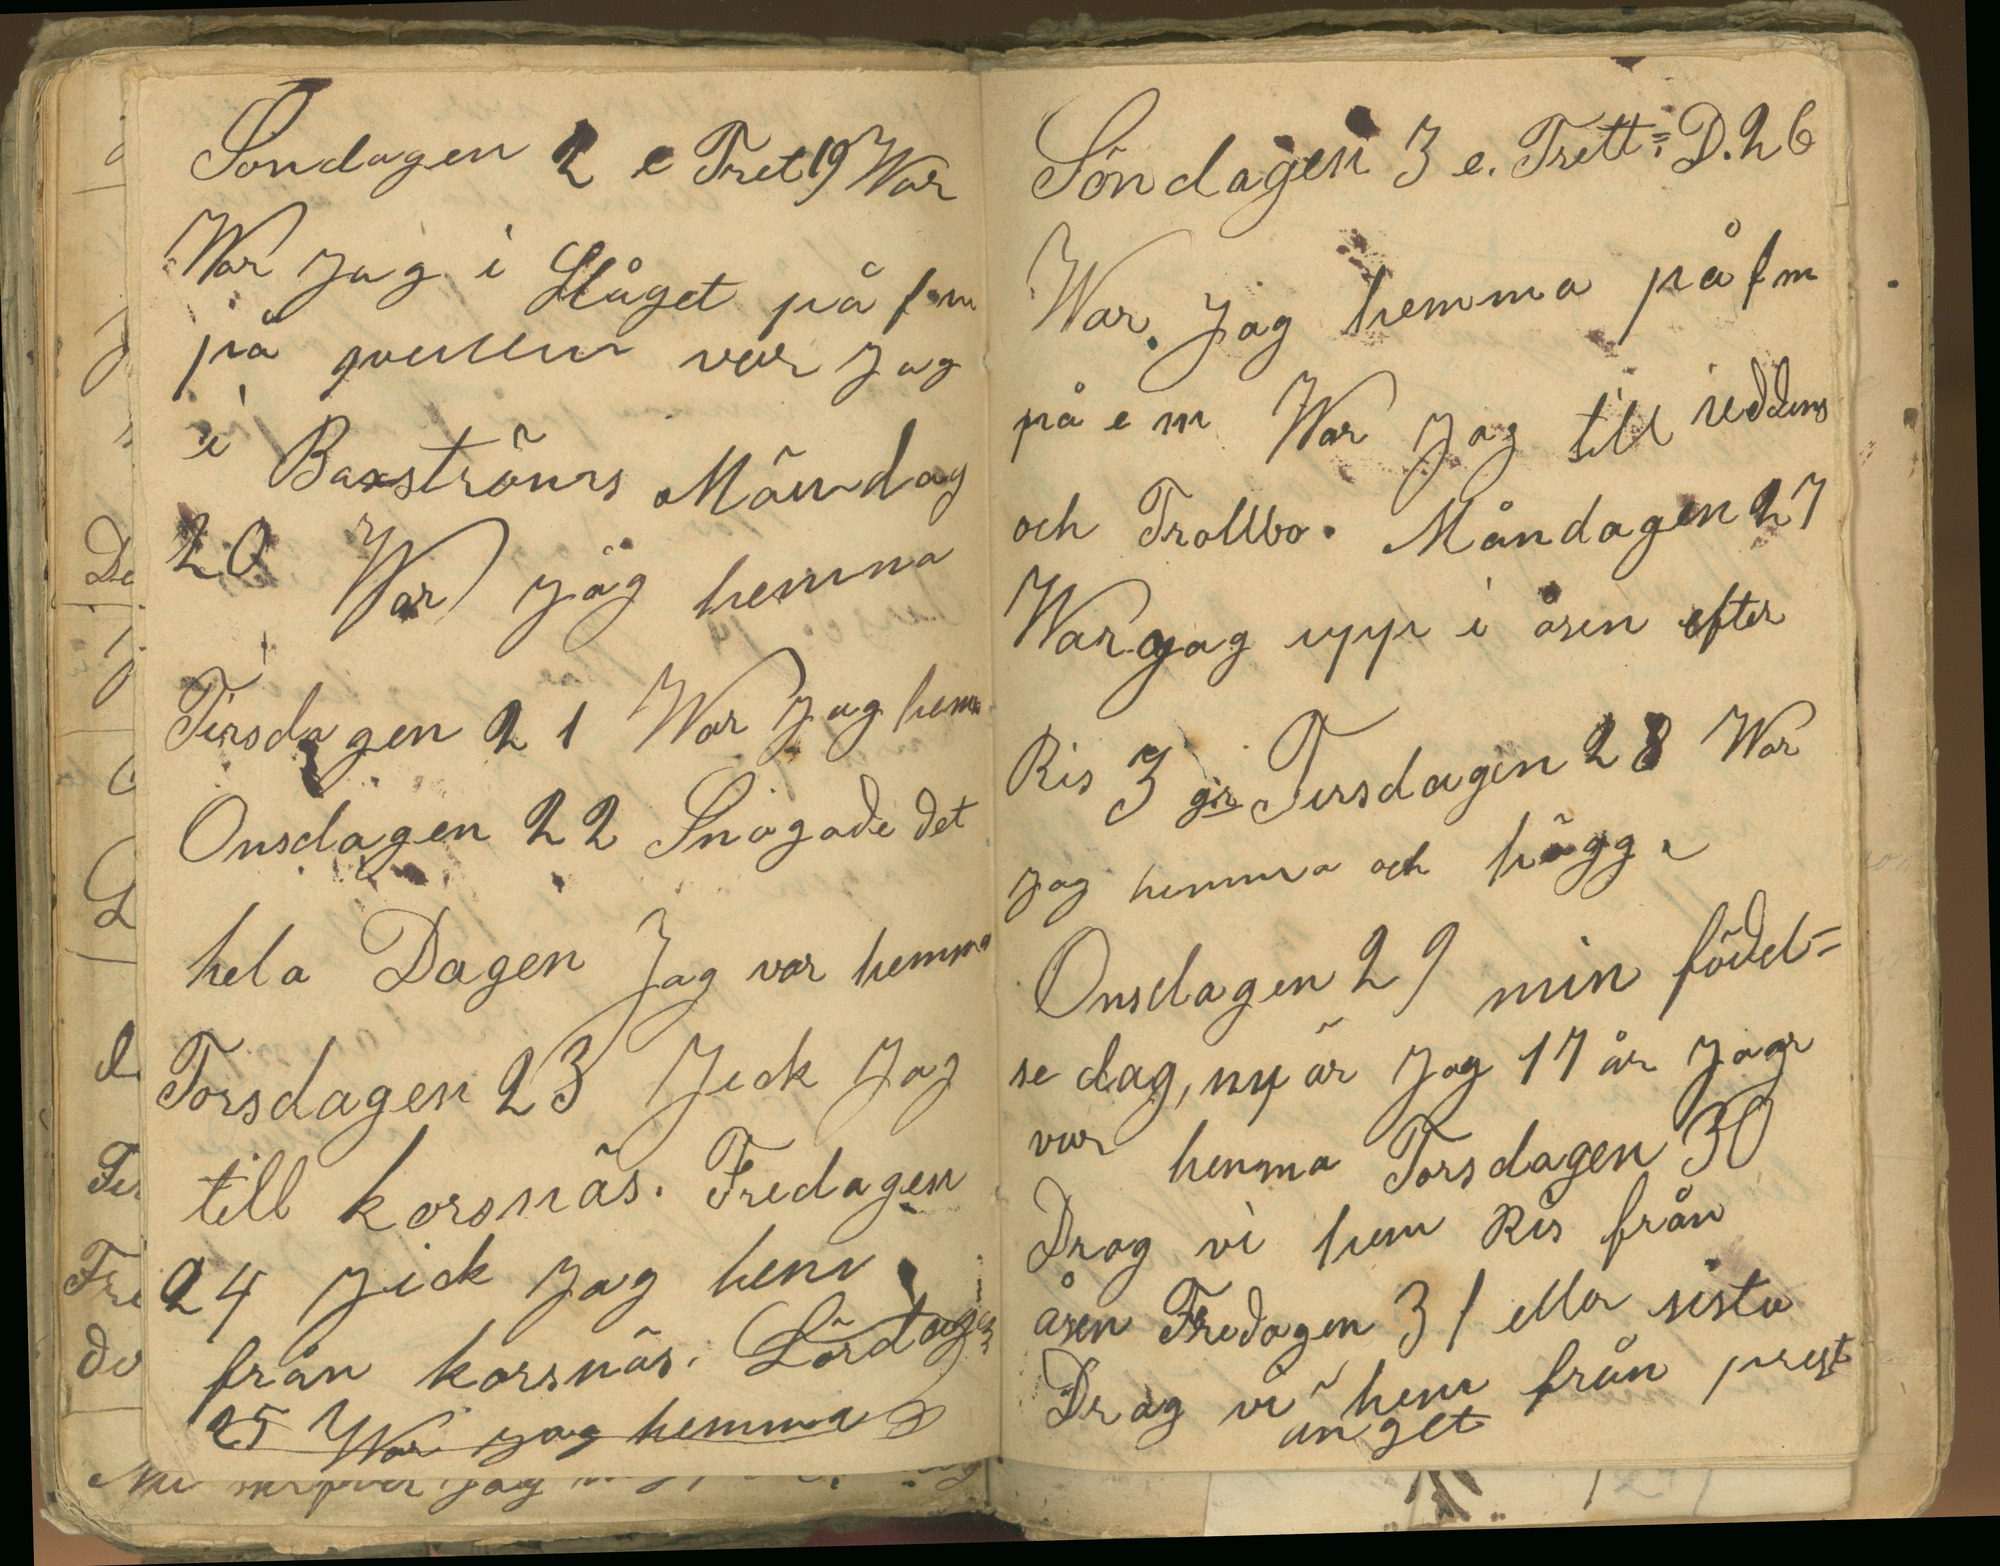 Söndagen 2 e Tret 19 War
War Jag i Slåget på fm
på qvellen var Jag
i Baxströms Måndag
20 War jag hemma
Tirsdagen 21 War Jag hem
Onsdagen 22 Snögade det
hela Dagen Jag var hemma
Torsdagen 23 Jick Jag
till korsnäs. Fredagen
24 Jick Jag hem
från korsnäs. Lördagen
25 War Jag hemma
Söndagen 3 e. Trett= D. 26
War Jag hemma på fm
på e m War Jag till
och Trollbo. Måndagen 27
War jag upp i åsen efter
Ris 3 gr Tirsdagen 28 War
jag hemma och högg.
Onsdagen 29 min födel=
se dag, ny är Jag 17 år Jag
var hemma Torsdagen 30
Drog vi hem Ris från
åsen Fredagen 31 eller sista
Drog vi hem från prest
änget